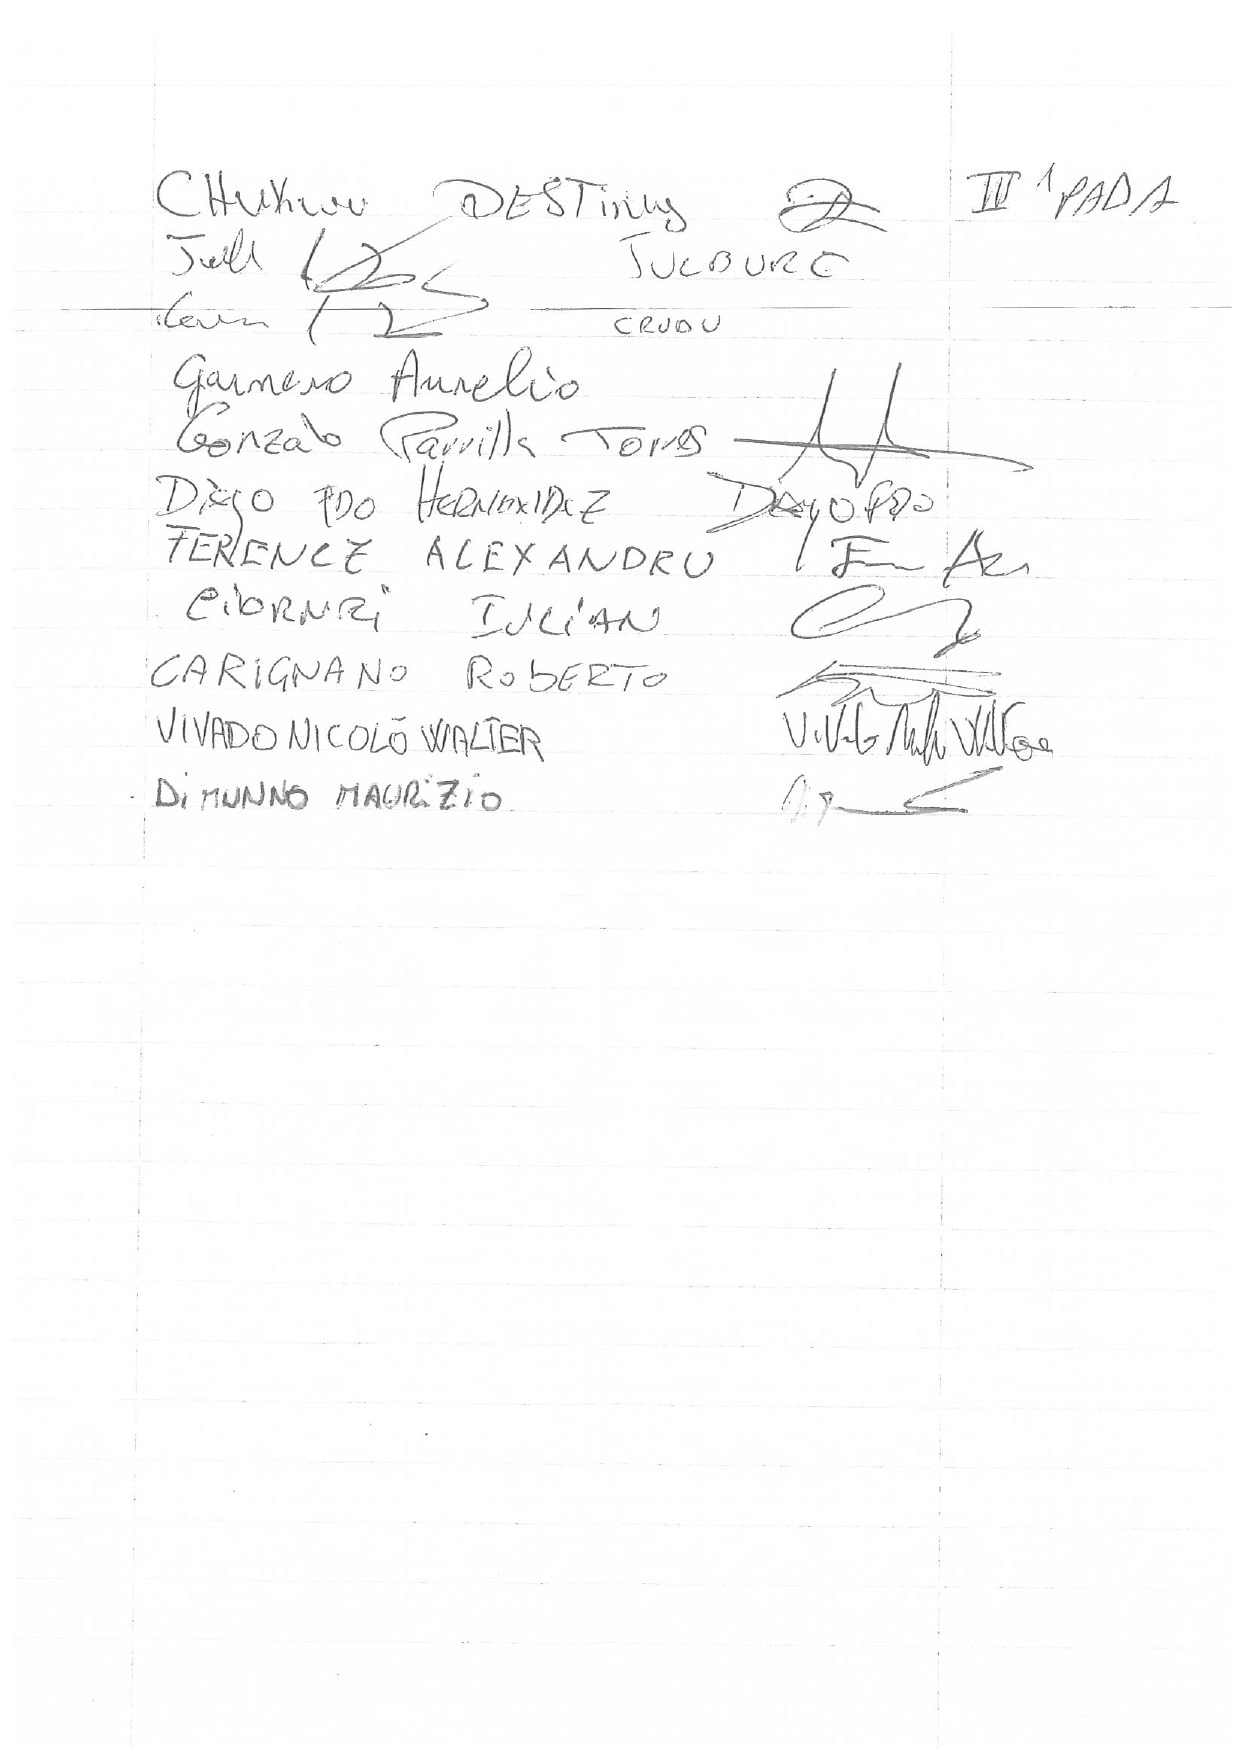 CHukwu DESTiny III 1 PAD A
TULBURE
CRUDU
Garnero Aurelio
Gonzalo Parrilla Torres
DiEGO PDO HERNANDEZ DiegoPDO
FERENCZ ALEXANDRU
CiORNEi IULiAN
CARiGNANO RobERTO
VIVADO NICOLÒ WALTER Vivado Nicolò Walter
Di MUNNO MAURiZiO